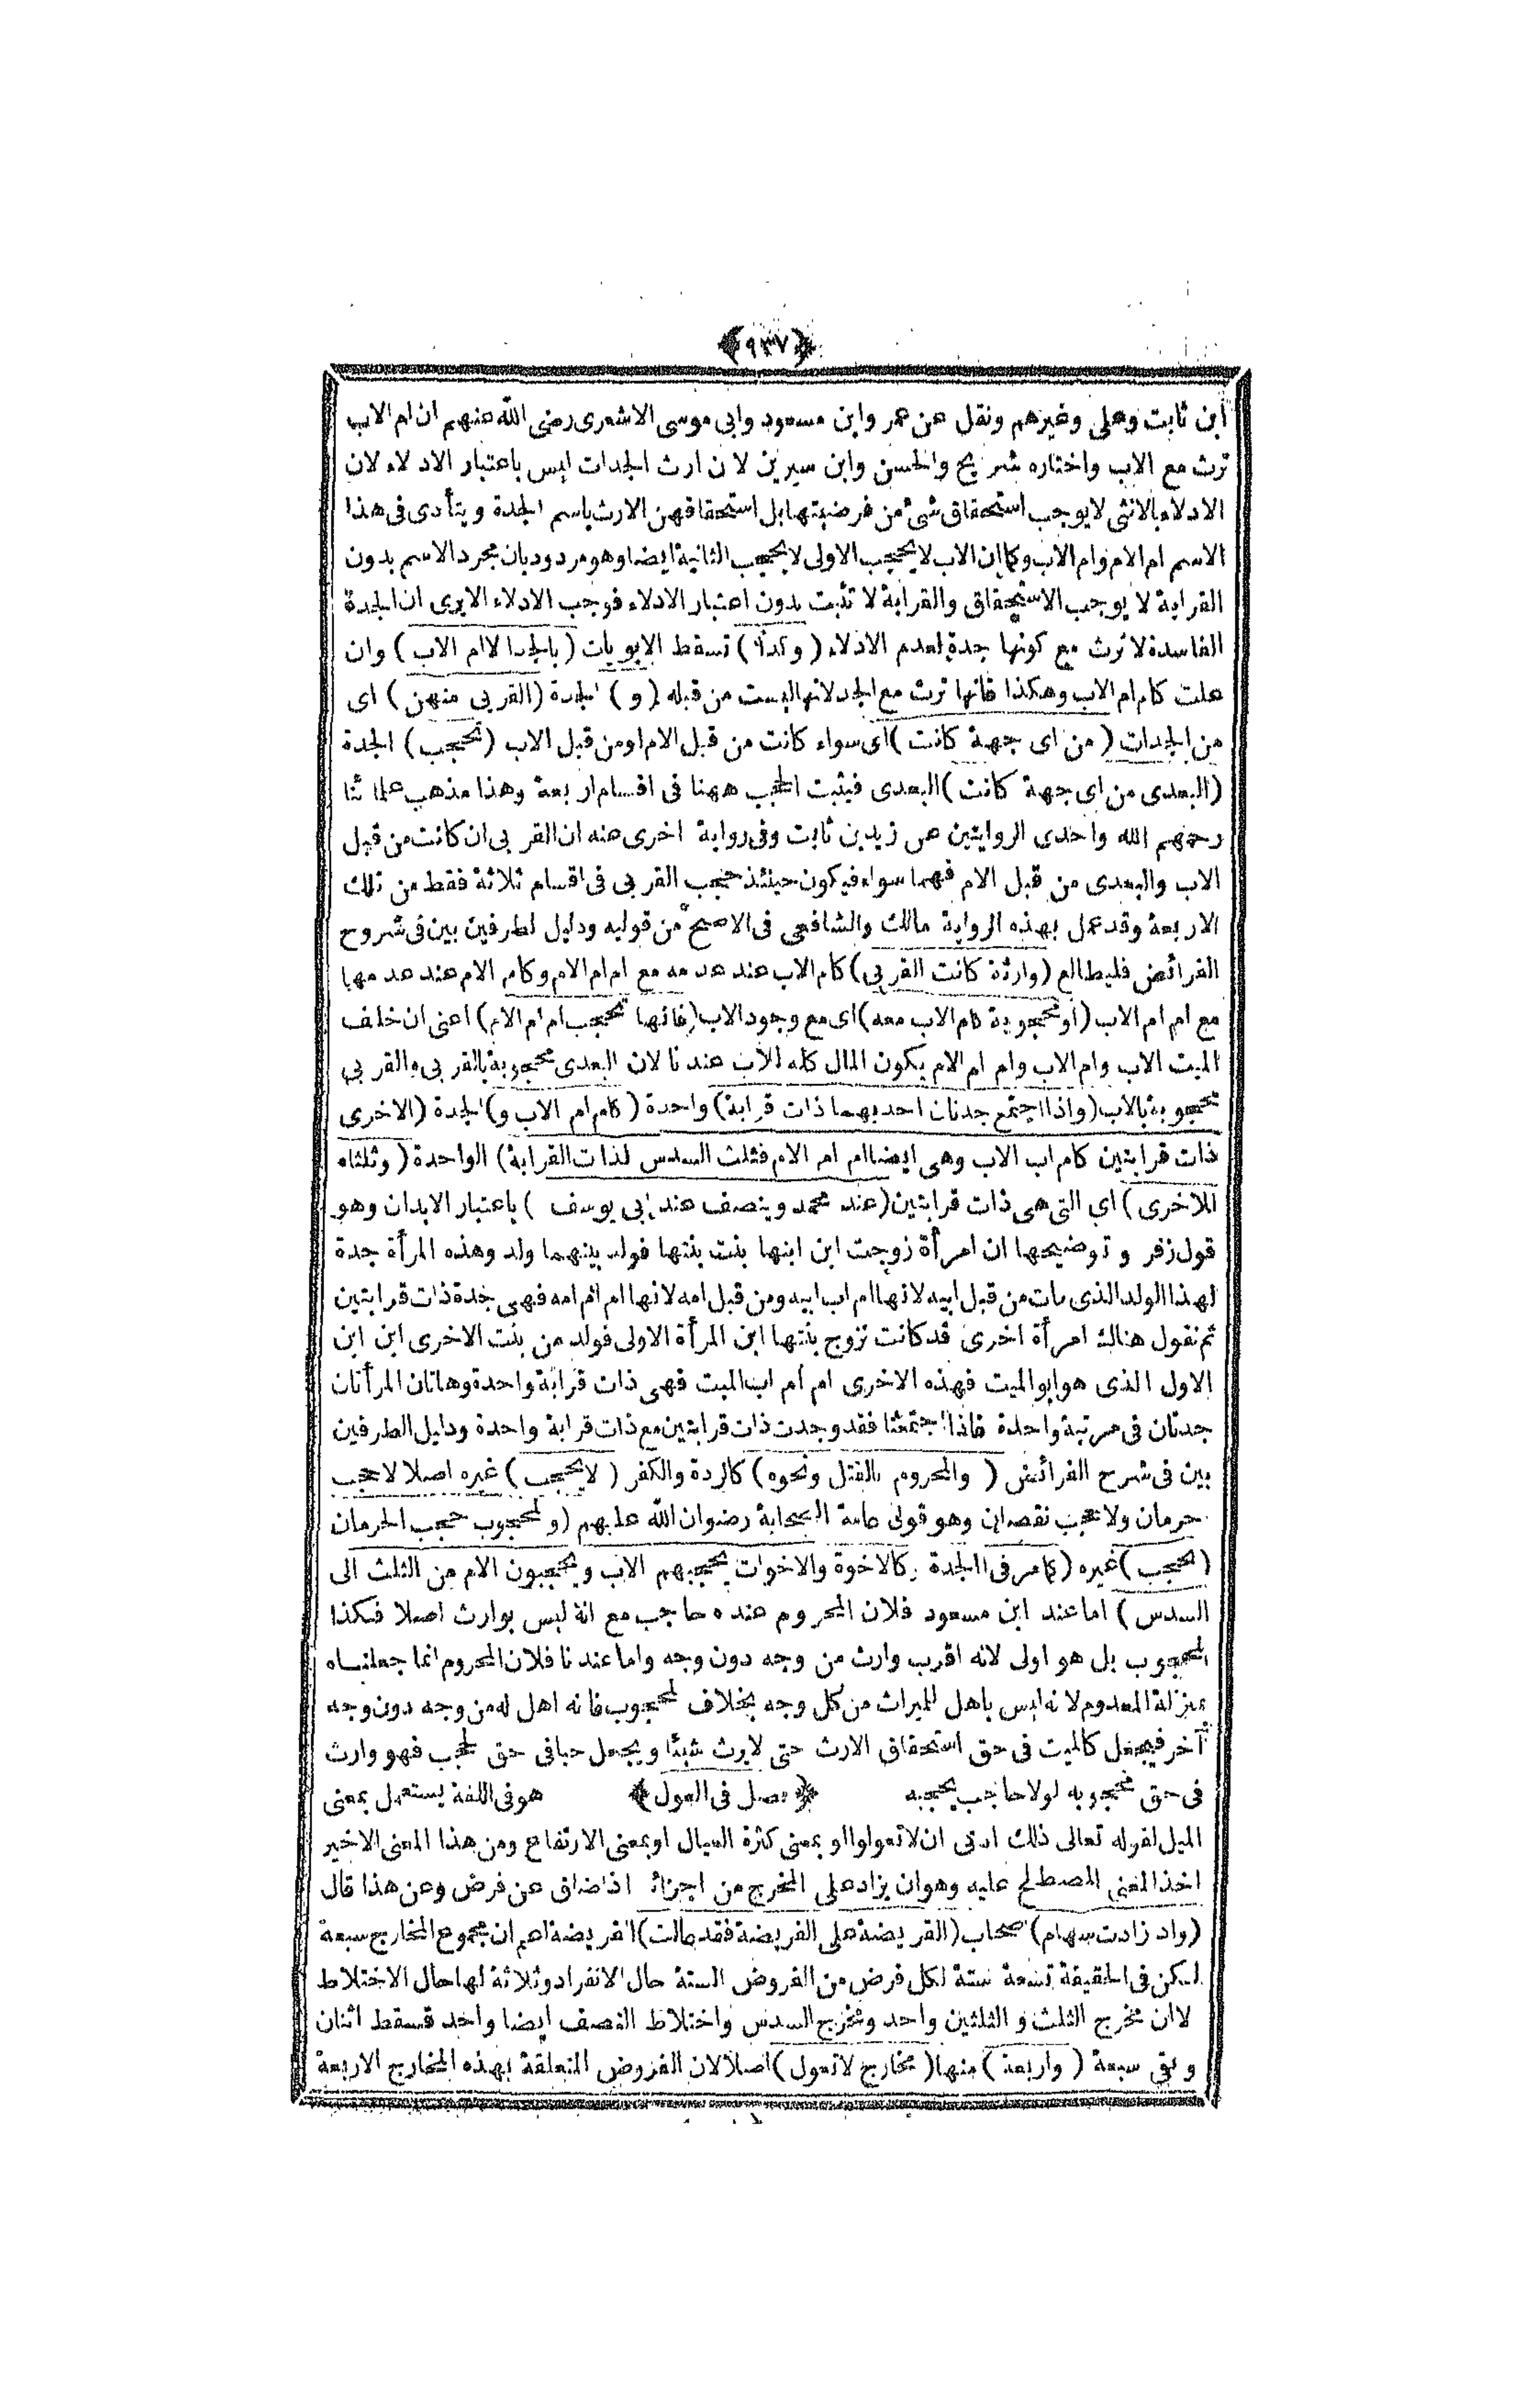 ﴿٩٣٧﴾
ابن ثابت وعلى وغيرهم ونقل عن عمر وابن مسعود وابى موسى الاشعرى رضى الله عنهم ان ام الاب
ترث مع الاب واختاره شريح والحسن وابن سيرين لان ارث الجدات ليس باعتبار الادلاء لان
الادلاء بالانثى لايوجب استحقاق شئ من فرضيتها بل استحقاقهن الارث باسم الجدة ويتأدى فى هذا
الاسم ام الام وام الاب وكما ان الاب لايحجب الاولى لايحجب الثانية ايضا وهو مردود بان مجرد الاسم بدون
القرابة لا يوجب الاستحقاق والقرابة لا تثبت بدون اعتبار الادلاء فوجب الادلاء الايرى ان الجدة
الفاسدة لا ترث مع كونها جدة لعدم الادلاء (وكذا) تسقط الابويات (بالجد الا ام الاب) وان
علت كام ام الاب وهكذا فانها ترث مع الجد لانها ليست من قبله (و) الجدة (القربى منهن) اى
من الجدات (من اى جهة كانت) اى سواء كانت من قبل الام او من قبل الاب (تحجب) الجدة
(البعدى من اى جهة كانت) البعدى فيثبت الحجب ههنا فى اقسام اربعة وهذا مذهب علمائنا
رحمهم الله واحدى الروايتين عن زيد بن ثابت وفى رواية اخرى عنه ان القربى ان كانت من قبل
الاب والبعدى من قبل الام فهما سواء فيكون حينئذ حجب القربى فى اقسام ثلاثة فقط من تلك
الاربعة وقد عمل بهذه الرواية مالك والشافعى فى الاصح من قوليه ودليل لطرفين بين فى شروح
الفرائض فليطالع (وارثة كانت القربى) كام الاب عند عدمه مع ام ام الام وكام الام عند عدمها
مع ام ام الاب (او محجوبة كام الاب معه) اى مع وجود الاب (فانها تحجب ام ام الام) اعنى ان خلف
الميت الاب وام الاب وام ام الام يكون المال كله للاب عندنا لان البعدى محجوبة بالقربى والقربى
محجوبة بالاب (واذا اجتمع جدتان احديهما ذات قرابة) واحدة (كام ام الاب و) الجدة (الاخرى
ذات قرابتين كام اب الاب وهى ايضا ام ام الام فثلث السدس لذات القرابة) الواحدة (وثلثاه
للاخرى) اى التى هى ذات قرابتين (عند محمد وينصف عند ابى يوسف) باعتبار الابدان وهو
قول زفر وتوضيحها ان امرأة زوجت ابن ابنها بنت بنتها فولد بينهما ولد وهذه المرأة جدة
لهذا الولد الذى مات من قبل ابيه لانها ام اب ابيه ومن قبل امه لانها ام ام امه فهى جدة ذات قرابتين
ثم نقول هنالك امرأة اخرى قد كانت تزوج بنتها ابن المرأة الاولى فولد من بنت الاخرى ابن ابن
الاول الذى هو ابو الميت فهذه الاخرى ام ام اب الميت فهى ذات قرابة واحدة وهاتان المرأتان
جدتان فى مرتبة واحدة فاذا اجتمعتا فقد وجدت ذات قرابتين مع ذات قرابة واحدة ودليل الطرفين
بين فى شرح الفرائض (والمحروم بالقتل ونحوه) كالردة والكفر (لايحجب) غيره اصلا لا حجب
حرمان ولا حجب نقصان وهو قول عامة الصحابة رضوان الله عليهم (والمحجوب حجب الحرمان
(يحجب) غيره (كما مر فى الجدة وكالاخوة والاخوات يحجبهم الاب ويحجبون الام من الثلث الى
السدس) اما عند ابن مسعود فلان المحروم عنده حاجب مع انه ليس بوارث اصلا فكذا
المحجوب بل هو اولى لانه اقرب وارث من وجه دون وجه واما عندنا فلان المحروم انما جعلناه
بمنزلة المعدوم لانه ليس باهل للميراث من كل وجه بخلاف المحجوب فانه اهل له من وجه دون وجه
آخر فيجعل كالميت فى حق استحقاق الارث حتى لايرث شيئا ويجعل حيا فى حق الحجب فهو وارث
فى حق محجوبه لولا حاجب يحجبه ﴿فصل فى العول﴾ هو فى اللغة يستعمل بمعنى
الميل لقوله تعالى ذلك ادنى ان لاتعولوا او بمعنى كثرة العيال او بمعنى الارتفاع ومن هذا المعنى الاخير
اخذ المعنى المصطلح عليه وهو ان يزاد على المخرج من اجزائه اذا ضاق عن فرض وعن هذا قال
(واذا زادت سهام) اصحاب (الفريضة على الفريضة فقد عالت) الفريضة اعلم ان مجموع المخارج سبعة
لكن فى الحقيقة تسعة ستة لكل فرض من الفروض الستة حال الانفراد وثلاثة لها حال الاختلاط
لاان مخرج الثلث و الثلثين واحد ومخرج السدس واختلاط النصف ايضا واحد فسقط اثنان
وبقى سبعة (واربعة) منها (مخارج لاتعول) اصلا لان الفروض المتعلقة بهذه المخارج الاربعة